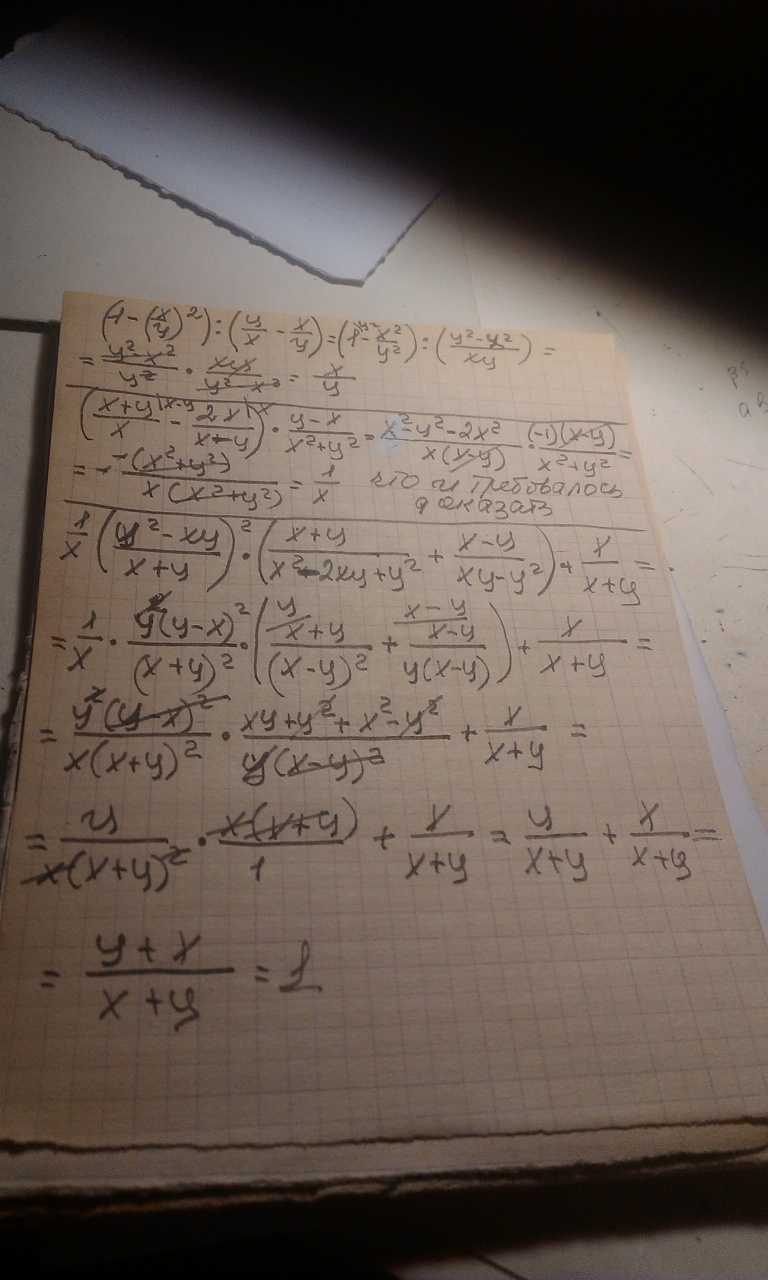 (1-(x/y)²):(y/x - x/y)=(1 - x²/y²):((y²-x²)/xy)=
= (y²-x²)/y² · xyx/(y²-x²) = x/y
((x+y)/x |x-y - 2x/(x-y) |x) · (y-x)/(x²+y²) = (x²-y²-2x²)/(x(x-y)) · (-1)(x-y)/(x²+y²) =
= - -(x²+y²)/(x(x²+y²)) = 1/x что и требовалось
доказать
1/x ((y²-xy)/(x+y))² · ((x+y)/(x²-2xy+y²) + (x-y)/(xy-y²)) + x/(x+y) =
= 1/x · y²(y-x)²/(x+y)² · (y/ (x+y)/(x-y)² + x-y/ (x-y)/(y(x-y))) + x/(x+y) =
= y²(y-x)²/(x(x+y)²) · (xy+y²+x²-y²)/(y(x-y)²) + x/(x+y) =
= y/(x(x+y)²) · x(x+y)/1 + x/(x+y) = y/(x+y) + x/(x+y) =
= (y+x)/(x+y) = 1